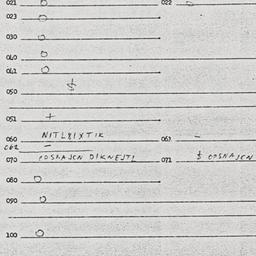 021 0 022 0
023 0
030 0
040 0
041 0
050 $
051 +
060 NITL8IXTIK 061 -
062 -
070 071 $
080 0
090 0
100 0